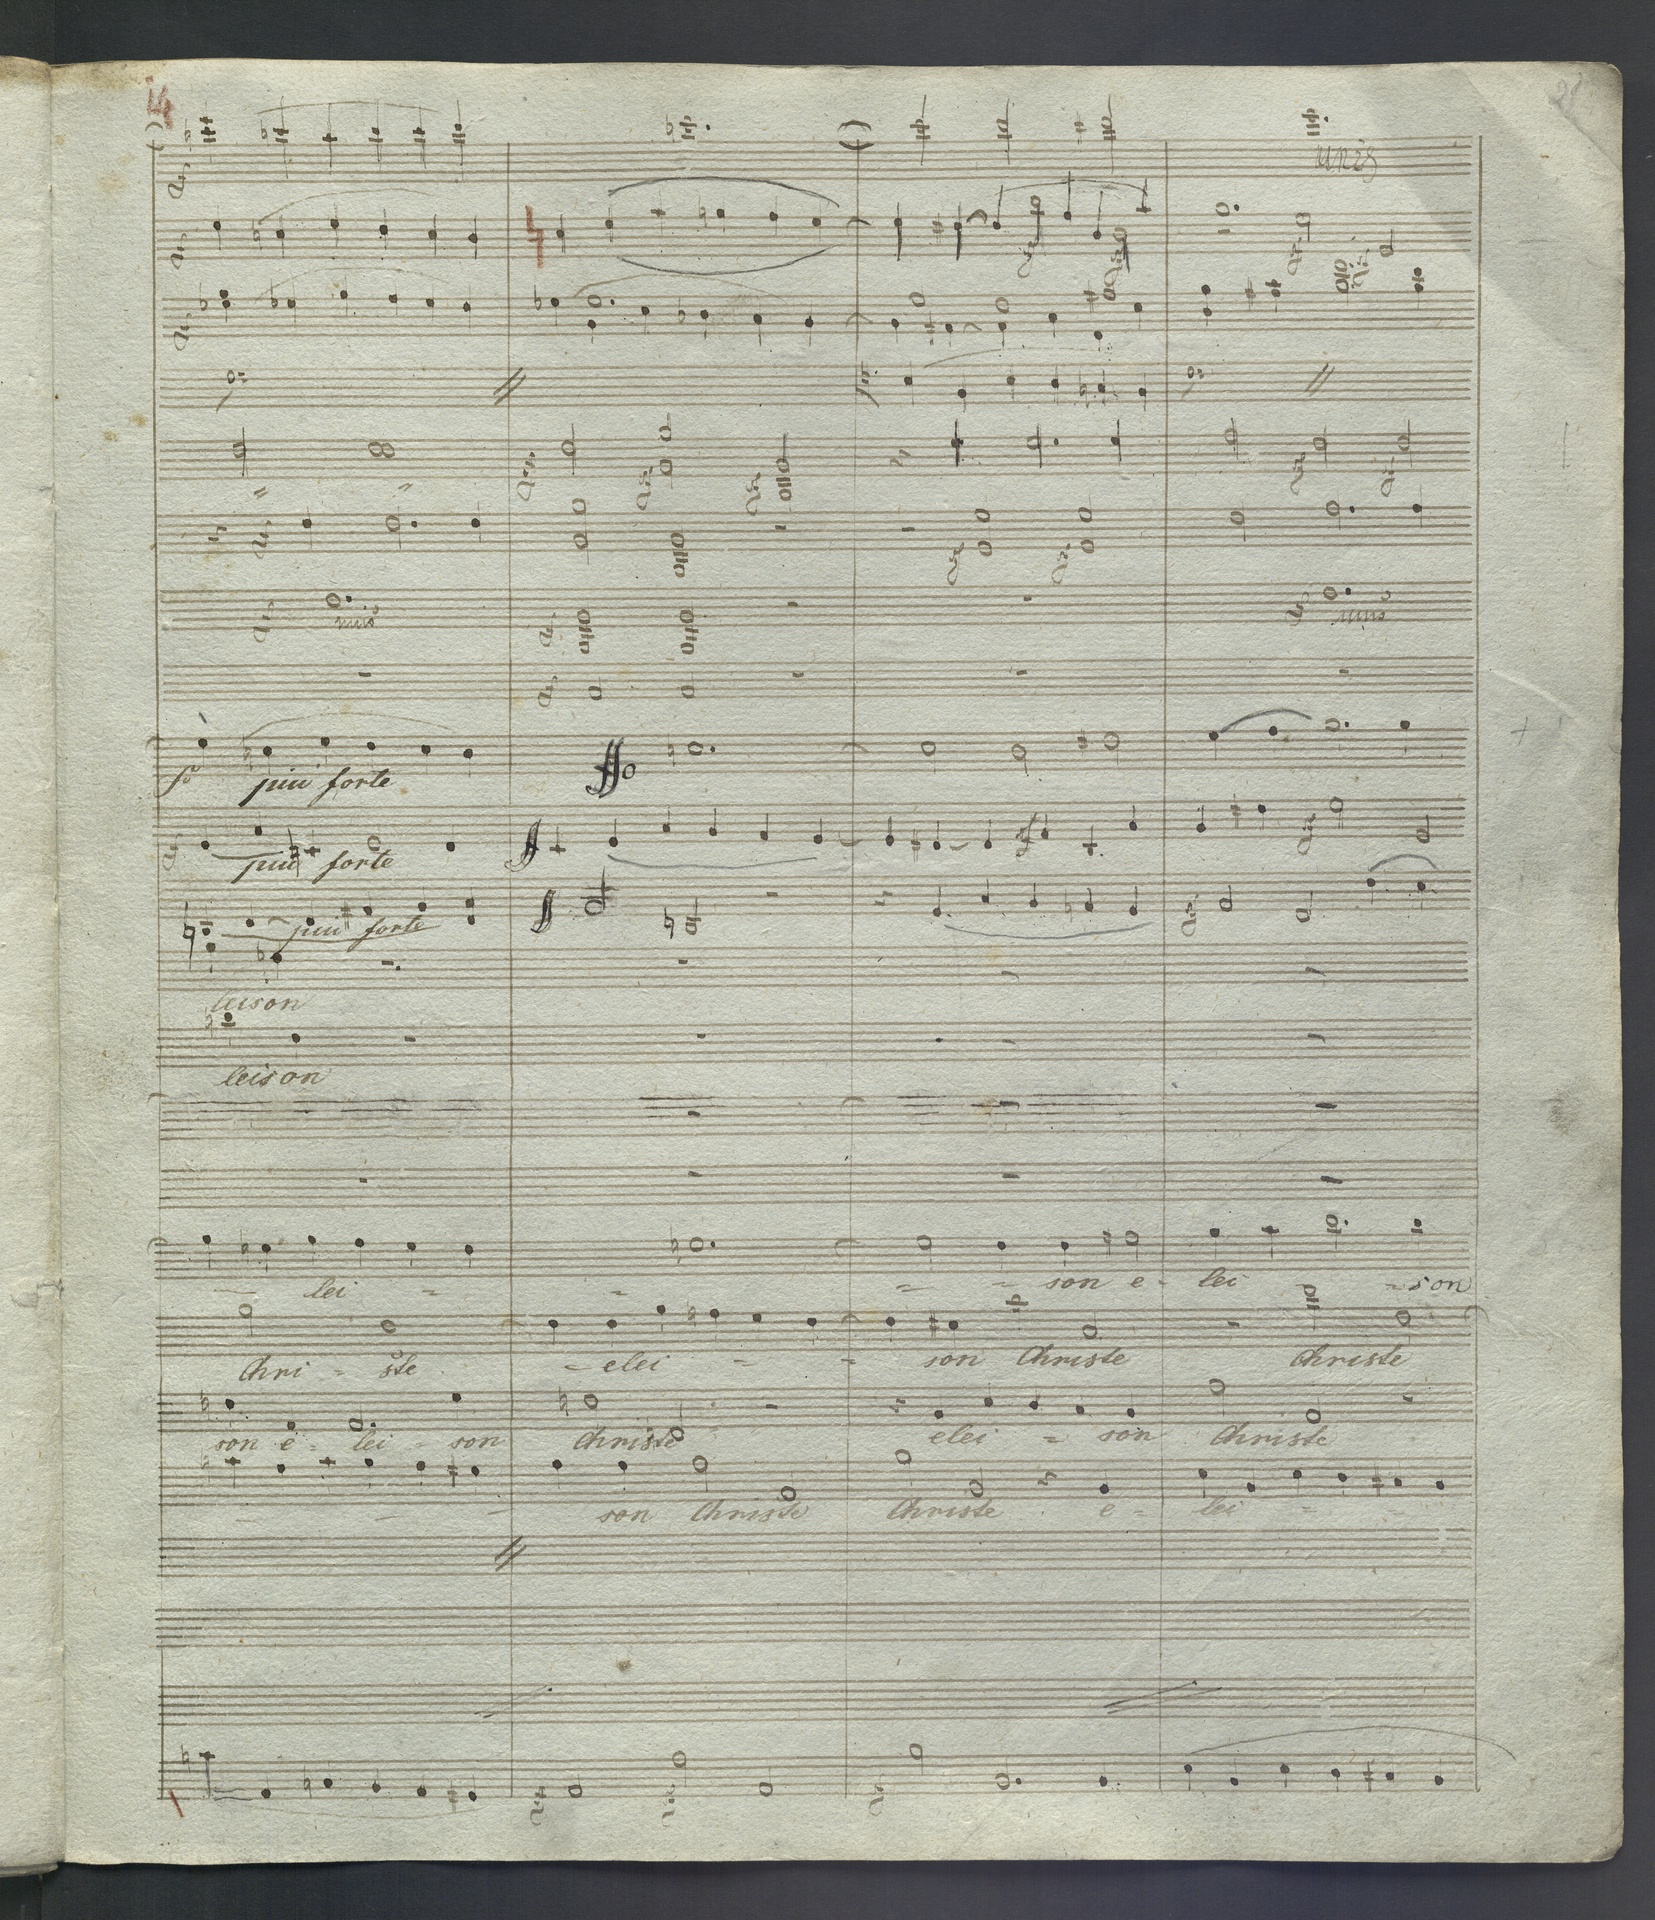 unis
unis
unis
fo
più forte
ffo
più forte
ff
più forte
ff
leison
leison
- lei - - - - son e - lei - - son
Chri - ste - elei - - son Christe Christe
son e - lei - son Christe elei - son Christe
- - - son Christe Christe e - lei - -